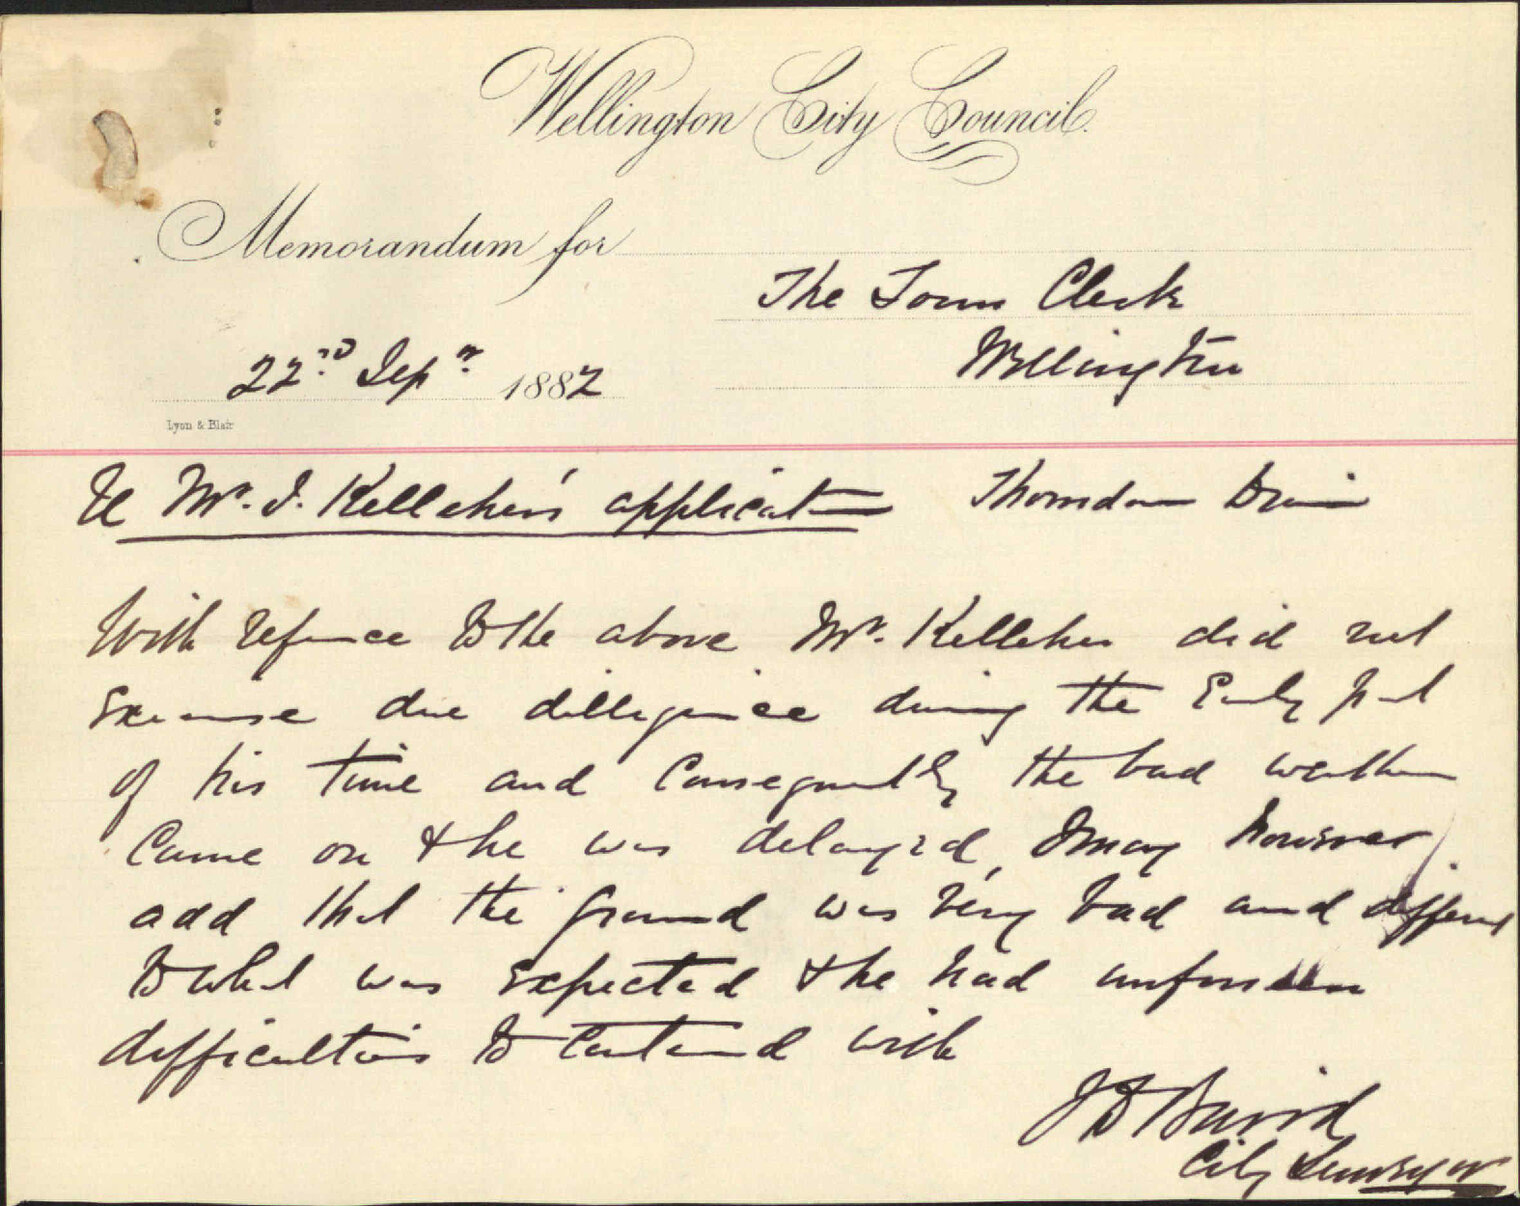 Wellington City Council.
Memorandum for
The Town Clerk
Wellington
22nd Sepr 1882
Lyon & Blair
Re Mr. J. Kelleher's application Thorndon Drain
With reference to the above Mr. Kelleher did not
Exercise due dilligence during the Early part
of his time and Consequently the bad weather
Came on & he was delayed, I may however
add that the ground was very bad and different
to what was expected & he had unforseen
difficulties to Contend with
J D Baird
City Surveyor